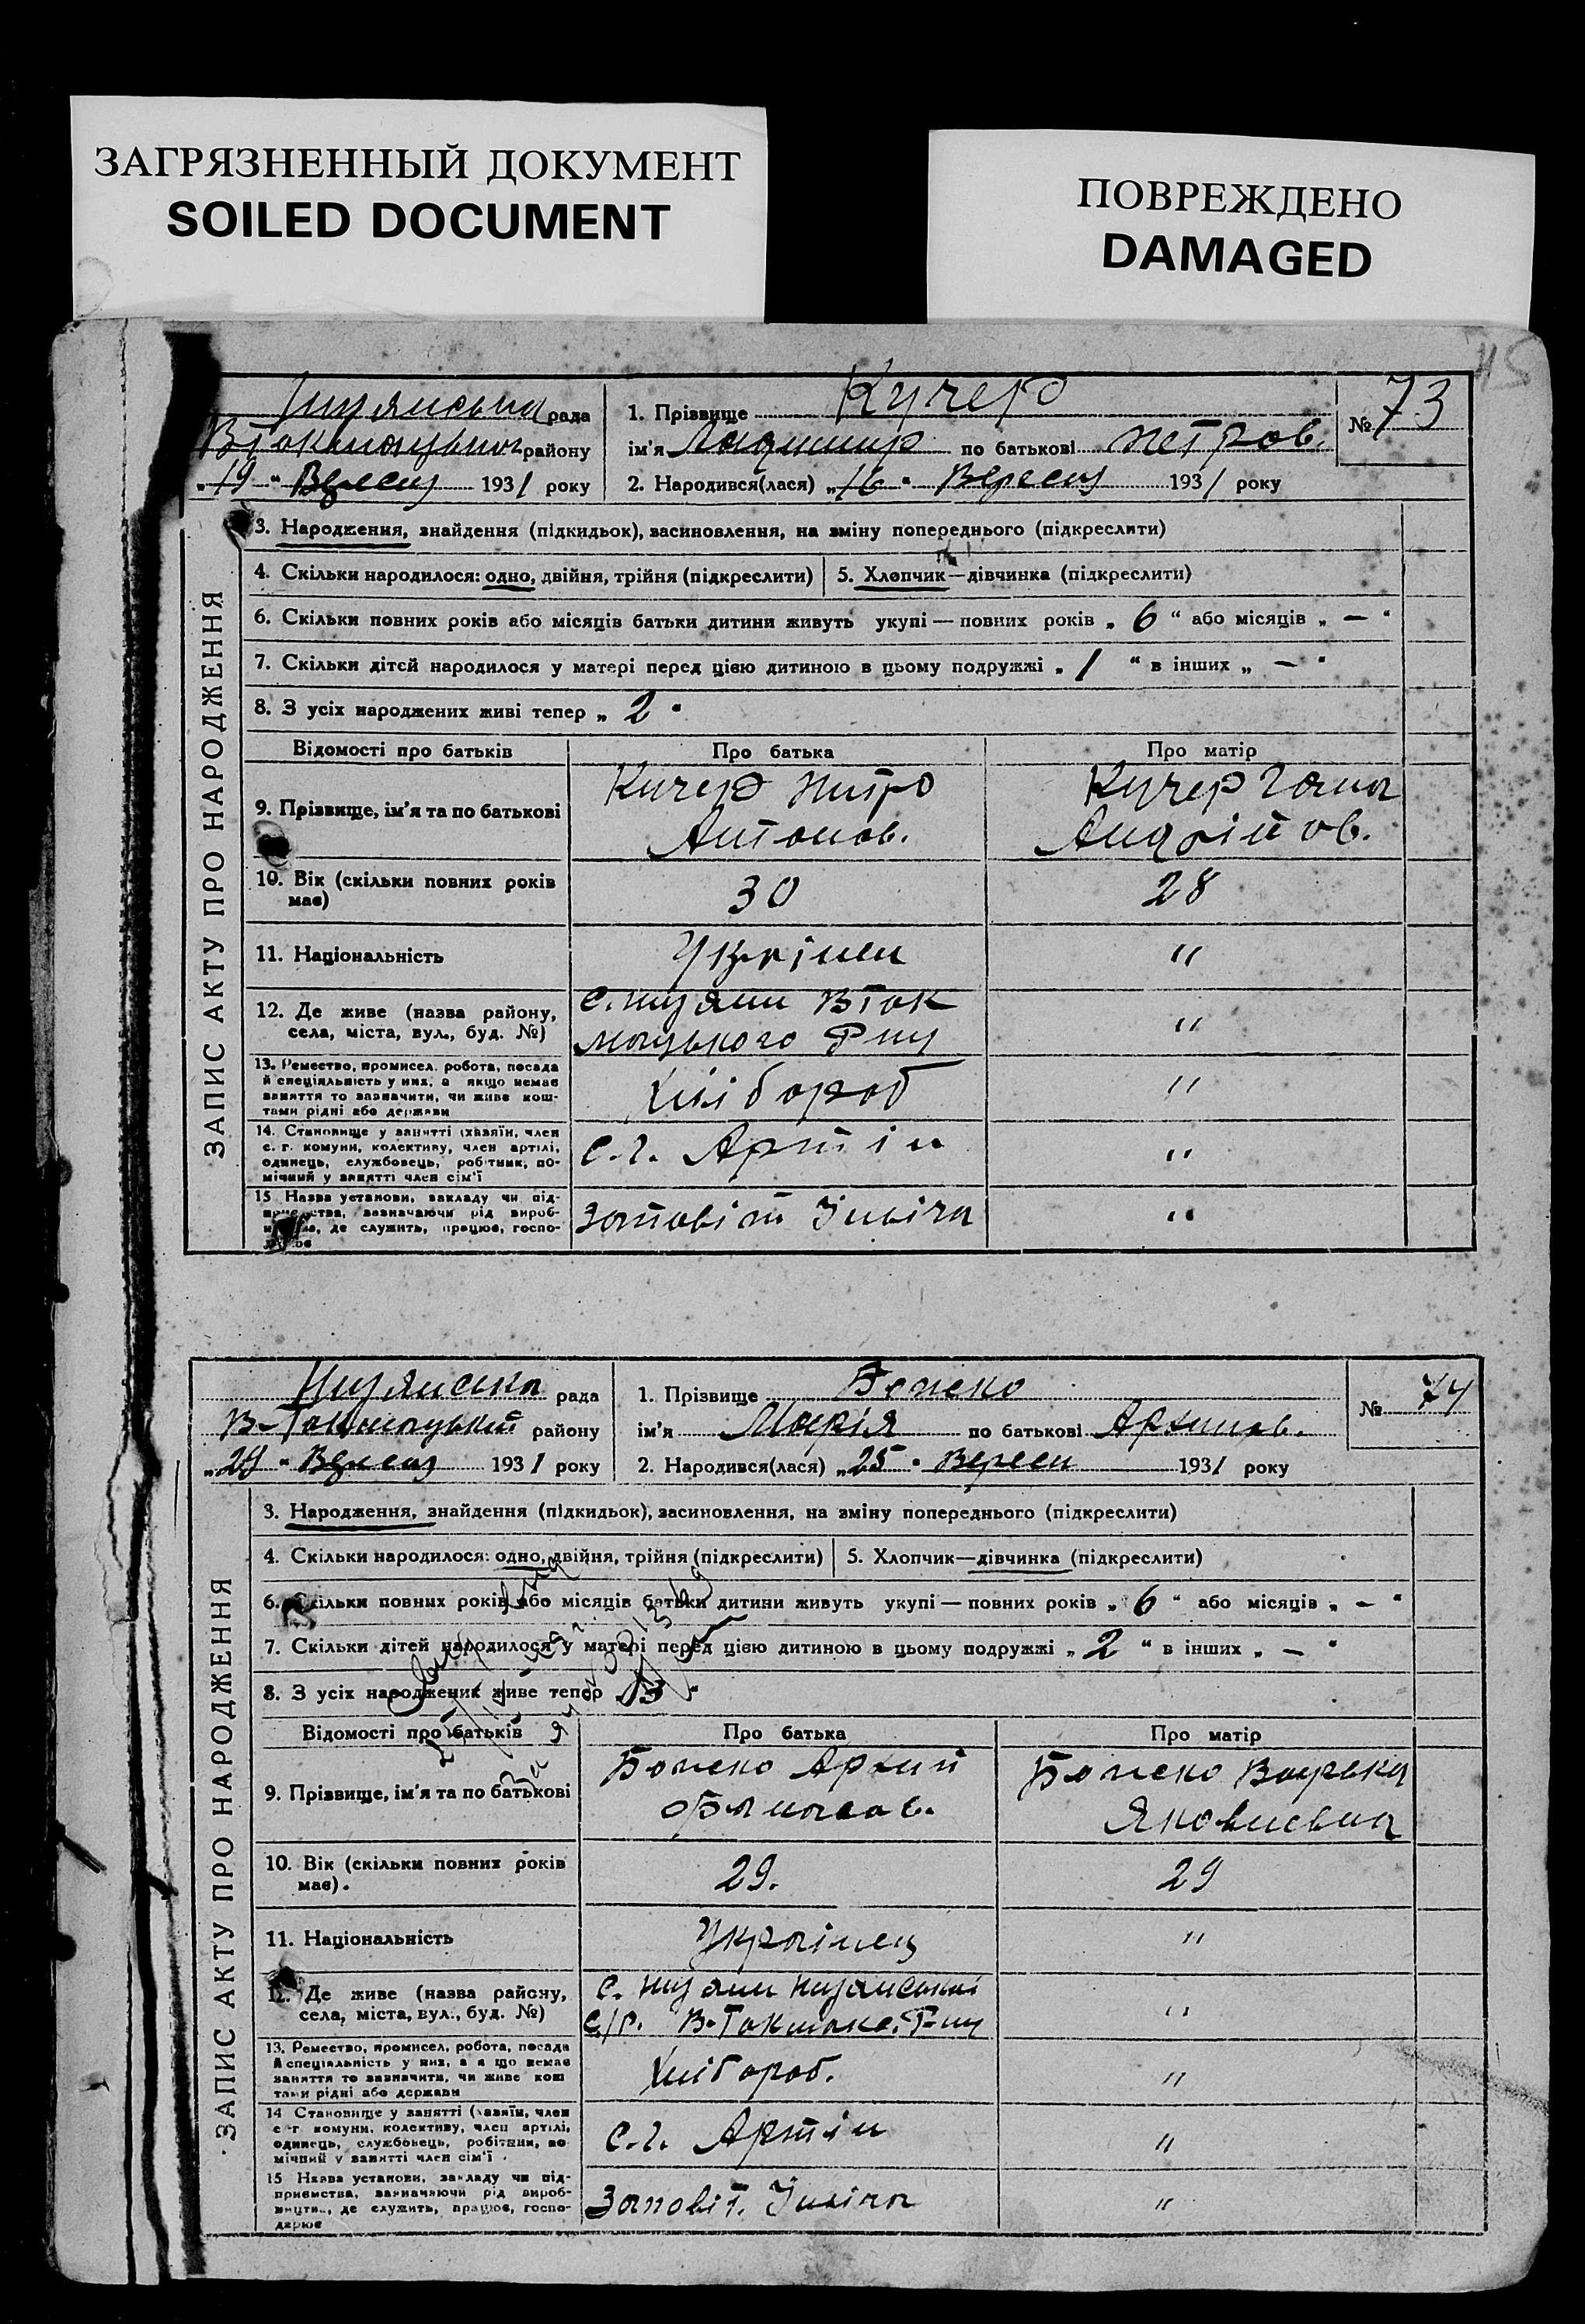 ЗАГРЯЗНЕННЫЙ ДОКУМЕНТ
SOILED DOCUMENT
ПОВРЕЖДЕНО
DAMAGED
115
рада
району
"19" Вересня 1931 року
1. Прізвище Кучер
ім'я по батькові Петров.
2. Народився(лася) "16" Вересня 1931 року
№ 73
ЗАПИС АКТУ ПРО НАРОДЖЕННЯ
3. Народження, знайдення (підкидьок), засиновлення, на зміну попереднього (підкреслити)
4. Скільки народилося: одно, двійня, трійня (підкреслити)
5. Хлопчик—дівчинка (підкреслити)
6. Скільки повних років або місяців батьки дитини живуть укупі — повних років „ 6 “ або місяців „ — “
7. Скільки дітей народилося у матері перед цією дитиною в цьому подружжі „ 1 “ в інших „ — “
8. З усіх народжених живі тепер „ 2 “
Відомості про батьків Про батька Про матір
9. Прізвище, ім'я та по батькові
Кучер Антонов.
Кучер Гана Андріїов.
10. Вік (скільки повних років має)
30
28
11. Національність
Українец
"
12. Де живе (назва району, села, міста, вул., буд. №)
"
13. Ремество, промисел, робота, посада
й спеціяльність у них, а якщо немає
заняття то зазначити, чи живе кош-
тами рідні або держави
Хлібороб
"
14. Становище у занятті (хазяїн, член
с. г. комуни, колективу, член артілі,
одинець, службовець, робітник, по-
мічний у занятті член сім'ї
с.г. Артіл
"
15 Назва установи, закладу чи під-
приємства, зазначаючи рід вироб-
ництва, де служить, працює, госпо-
дарює
Заповіт Ілліча
"
рада
В-Токмацький району
"29" Вересня 1931 року
1. Прізвище Божко
ім'я Марія по батькові Архипов.
2. Народився(лася) "25" Вересн 1931 року
№ 74
ЗАПИС АКТУ ПРО НАРОДЖЕННЯ
3. Народження, знайдення (підкидьок), засиновлення, на зміну попереднього (підкреслити)
4. Скільки народилося: одно, двійня, трійня (підкреслити)
5. Хлопчик—дівчинка (підкреслити)
6. Скільки повних років або місяців батьки дитини живуть укупі — повних років „ 6 “ або місяців „ — “
7. Скільки дітей народилося у матері перед цією дитиною в цьому подружжі „ 2 “ в інших „ — “
8. З усіх народжених живе тепер „ 3 “
Відомості про батьків Про батька Про матір
9. Прізвище, ім'я та по батькові
Божко Архип
Божко Яковлевна
10. Вік (скільки повних років має).
29.
29
11. Національність
Українец
"
12. Де живе (назва району, села, міста, вул., буд. №)
с/р. В-Токмак. Р-ну
"
13. Ремество, промисел, робота, посада
й спеціяльність у них, а якщо немає
заняття то зазначити, чи живе кош
тами рідні або держави
Хлібороб.
"
14 Становище у занятті (хазяїн, член
с г. комуни, колективу, член артілі,
одинець, службовець, робітник, по
мічний у занятті член сім'ї
с.г. Артіл
"
15 Назва установи, закладу чи під-
приємства, зазначаючи рід вироб-
ництв., де служить, працює, госпо-
дарює
Заповіт. Ілліча
"